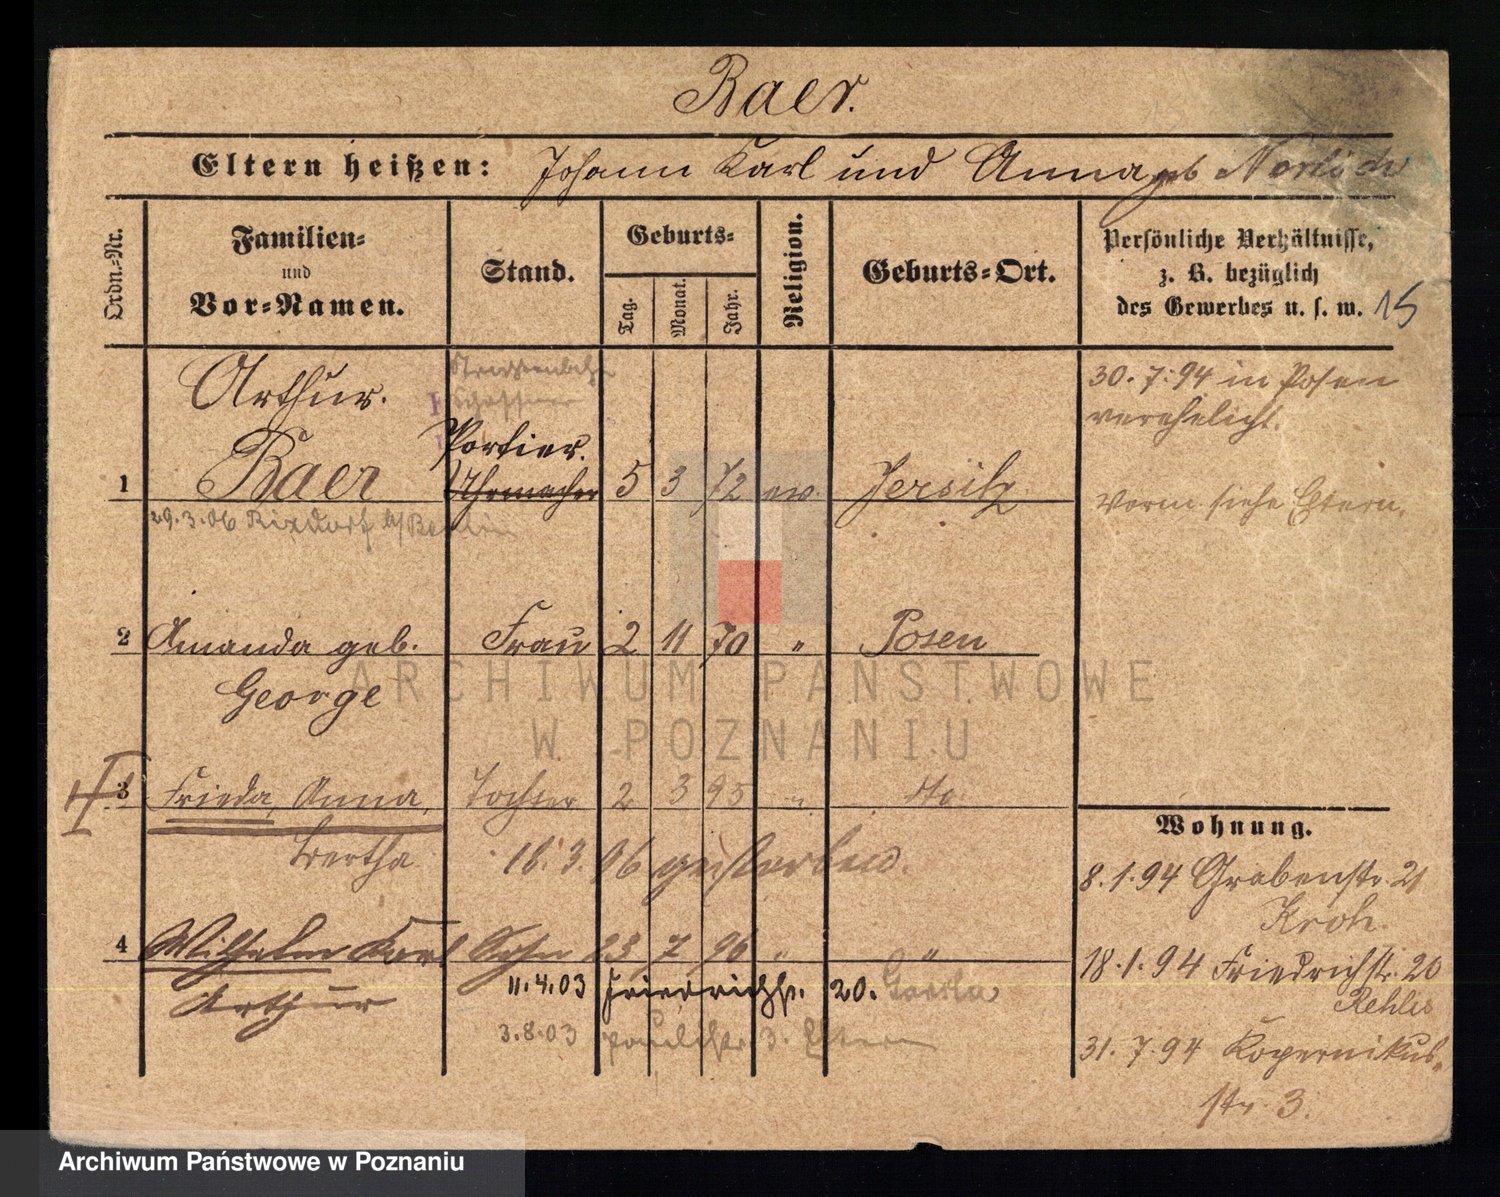 Baer.
Eltern heißen: Johann Karl und Anna geb
Ordn.-Nr.
Familien-
und
Vor-Namen.
Stand.
Geburts-
Tag.
Monat.
Jahr.
Religion.
Geburts-Ort.
Persönliche Verhältnisse,
z. B. bezüglich
des Gewerbes u. s. w. 15
Arthur.
Portier.
1 Baer Uhrmacher 5 3 72 ev. Jersitz
29.3.06 Rixdorf b/Berlin
30.7.94 in Posen
verehelicht.
Vorm siehe Eltern.
2 Amanda geb. Frau 2 11 70 " Posen
George
3 Frieda, Anna, Tochter 2 3 95 " dto
Bertha 18.3.06 gestorben.
4 Wilhelm Karl Sohn 23 7 96 " "
Arthur 11.4.03 Friedrichstr. 20.
3.8.03 Paulistr. 3. Eltern
Wohnung.
8.1.94 Grabenstr. 21
Kroh.
18.1.94 Friedrichstr. 20
31.7.94 Kopernikus-
str. 3.
ARCHIWUM PAŃSTWOWE
W POZNANIU
Archiwum Państwowe w Poznaniu